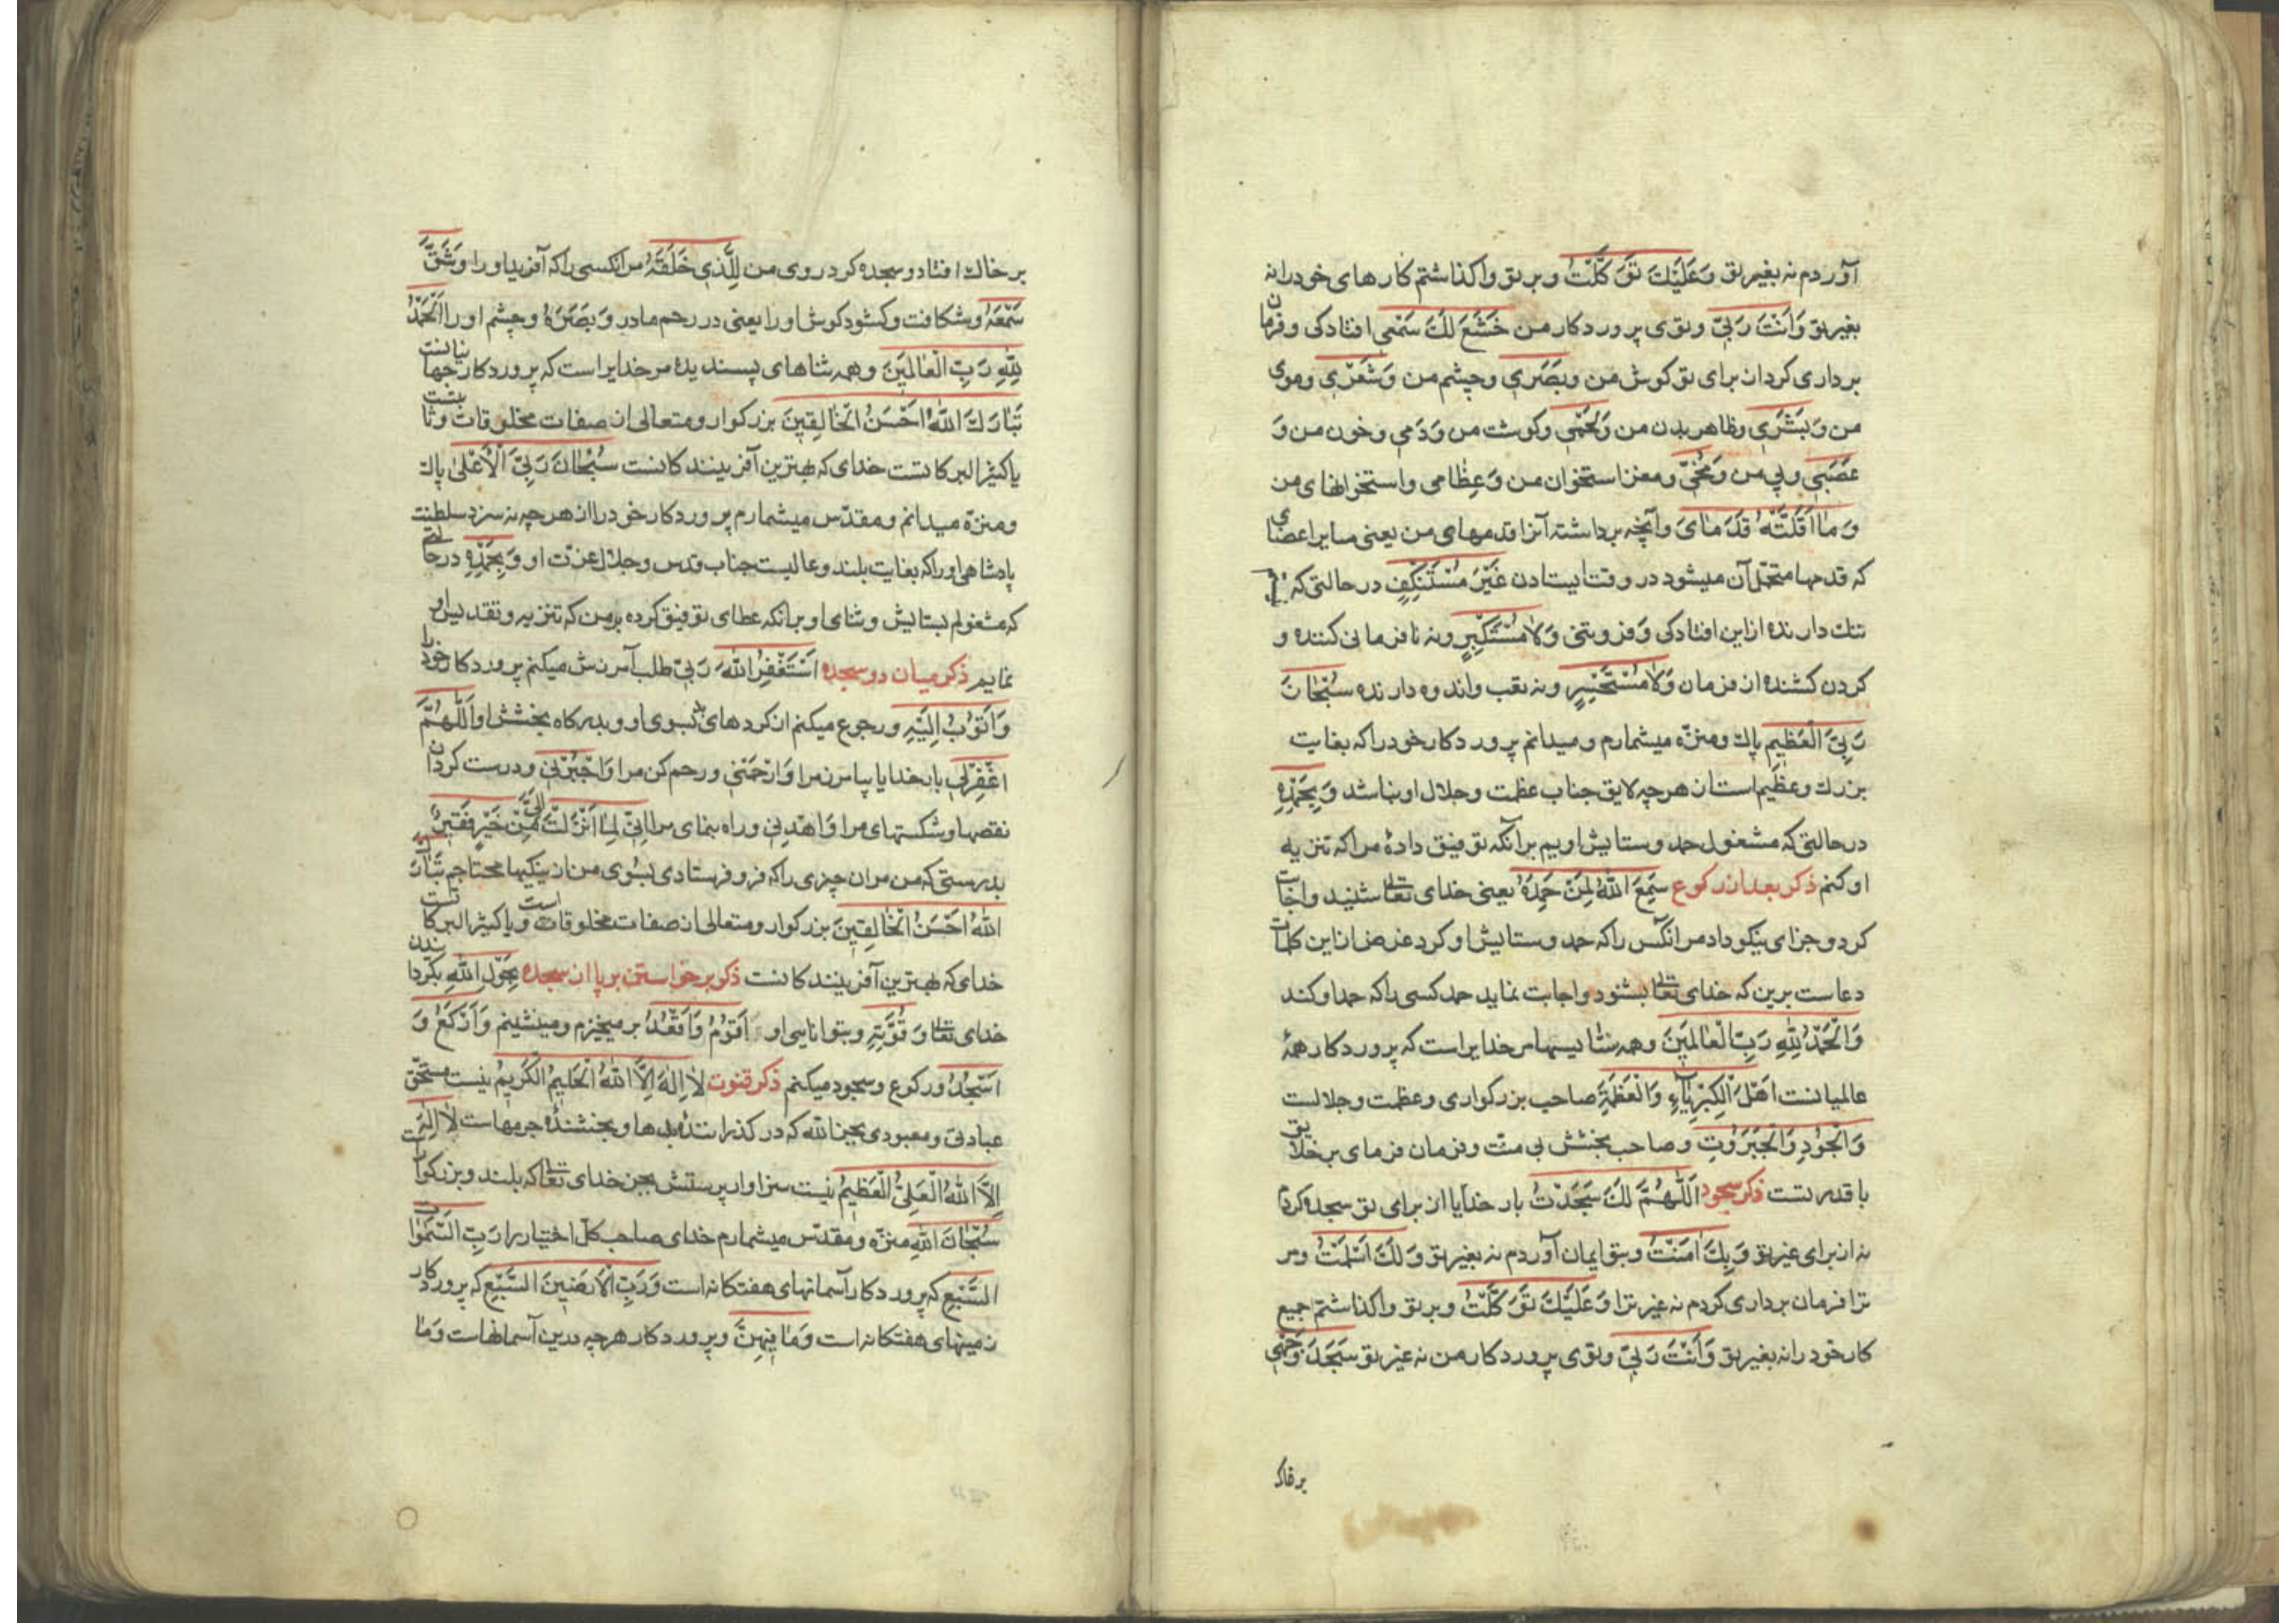 آوردم نه بغیر تو وَعَلَیْكَ تَوَكَّلْتُ و بر تو واکذاشتم کارهای خود را نه
بغیر تو وَاَنْتَ رَبّی و توی پروردکار من خَشَعَ لَكَ سَمْعی افتادکی و فرمان
برداری کردان برای تو کوش من وَبَصَری و چشم من وَشَعْری و موی
من وَبَشَری و ظاهر بدن من وَلَحْمی و کوشت من وَدَمی و خون من وَ
عَصَبی و پی من وَمُخّی و مغز استخوان من وَعِظامی و استخوانهای من
وَمٰا اَقَلَّتْهُ قَدَمٰایَ و آنچه برداشته آنرا قدمهای من یعنی سایر اعضای
که قدمها متحمّل آن میشود در وقت ایستادن غَیْرَ مُسْتَنْكِفٍ در حالتی که
ننك دارنده از این افتادکی و فروتنی وَلٰا مُسْتَكْبِرٍ و نه نافرمانی کننده و
کردن کشنده از فرمان وَلٰا مُسْتَحْسِرٍ و نه تعب و اندوه دارنده سُبْحٰانَ
رَبِّیَ الْعَظیمِ پاك و منزّه میشمارم و میدانم پروردکار خود را که بغایت
بزرك و عظیم است از هر چه لایق جناب عظمت و جلال او نباشد وَبِحَمْدِهِ
در حالتی که مشغول حمد و ستایش اویم بر آنکه توفیق دادهٔ مرا که تنزیه
او کنم ذکر بعد از رکوع سَمِعَ اللهُ لِمَنْ حَمِدَهُ یعنی خدای تعالی شنید و اجابت
کرد و جزای نیکو داد مر انکس را که حمد و ستایش او کرد غرض از این کلمات
دعاست برین که خدای تعالی بشنود و اجابت نماید حمد کسی را که حمد او کند
وَالْحَمْدُ لِلّٰهِ رَبِّ الْعٰالَمینَ و همه ستایسها مر خدایراست که پروردکار همهٔ
عالمیانست اَهْلَ الْكِبْرِیٰآءِ وَالْعَظَمَةِ صاحب بزرکواری و عظمت و جلالست
وَالْجُودِ وَالْجَبَرُوتِ و صاحب بخشش بی منّت و فرمان فرمای بر خلایق
با قدرتست ذکر سجود اَللّٰهُمَّ لَكَ سَجَدْتُ بار خدایا از برای تو سجده کردم
نه از برای غیر تو وَبِكَ اٰمَنْتُ و بتو ایمان آوردم نه بغیر تو وَلَكَ اَسْلَمْتُ و مر
ترا فرمان برداری کردم نه غیر ترا وَعَلَیْكَ تَوَكَّلْتُ و بر تو واکذاشتم جمیع
کار خود را نه بغیر تو وَاَنْتَ رَبّی و توی پروردکار من نه غیر تو سَجَدَ وَجْهی
بر خاک
بر خاك افتاد و سجده کرد روی من لِلَّذی خَلَقَهُ مر انکسی را که آفرید او را وَشَقَّ
سَمْعَهُ و شکافت و کشود کوش او را یعنی در رحم مادر وَبَصَرَهُ و چشم او را اَلْحَمْدُ
لِلّٰهِ رَبِّ الْعٰالَمینَ و همه ثناهای پسندیده مر خدایراست که پروردکار جهانیانست
تَبٰارَكَ اللهُ اَحْسَنُ الْخٰالِقینَ بزرکوار و متعالی از صفات مخلوقات و ثابتست
یا کثیر البرکاتست خدای که بهترین آفرینندکانست سُبْحٰانَ رَبِّیَ الْاَعْلیٰ پاك
و منزّه میدانم و مقدّس میشمارم پروردکار خود را از هر چه نه سزد سلطنت
پادشاهی او را که بغایت بلند و عالیست جناب قدس و جلال عزّت او وَبِحَمْدِهِ در حالتیم
که مشغولم بستایش و ثنای او بر آنکه عطای توفیق کرده بر من که تنزیه و تقدیس او
نمایم ذکر میان دو سجده اَسْتَغْفِرُ اللهَ رَبّی طلب آمرزش میکنم پروردکار خود را
وَاَتُوبُ اِلَیْهِ و رجوع میکنم از کردهای بد بسوی او و بدرکاه بخشش او اَللّٰهُمَّ
اغْفِرْلی بار خدایا بیامرز مرا وَارْحَمْنی و رحم کن مرا وَاجْبُرْنی و درست کردان
نقصها و شکستهای مرا وَاهْدِنی و راه بنمای مرا اِنّی لِمٰا اَنْزَلْتَ اِلَیَّ مِنْ خَیْرٍ فَقیرٌ
بدرستی که من مر ان چیزی را که فرو فرستادی بسوی من از نیکیها محتاجم تَبٰارَكَ
اللهُ اَحْسَنُ الْخٰالِقینَ بزرکوار و متعالی از صفات مخلوقات است و یا کثیر البرکاتست
خدای که بهترین آفرینندکانست ذکر برخواستن بر پا از سجده بِحَوْلِ اللهِ بکردانیدن
خدای تعالی وَقُوَّتِهِ و بتوانایی او اَقُومُ وَاَقْعُدُ بر میخیزم و مینشینم وَاَرْكَعُ وَ
اَسْجُدُ و رکوع و سجود میکنم ذکر قنوت لٰا اِلٰهَ اِلَّا اللهُ الْحَلیمُ الْكَریمُ نیست مستحقّ
عبادتی و معبودی بجز الله که در کذرانندهٔ بدها و بخشندهٔ جرمهاست لٰا اِلٰهَ
اِلَّا اللهُ الْعَلِیُّ الْعَظیمُ نیست سزاوار پرستش بجز خدای تعالی که بلند و بزرکوار است
سُبْحٰانَ اللهِ منزّه و مقدّس میشمارم خدای صاحب کلّ اختیار را رَبِّ السَّمٰوٰاتِ
السَّبْعِ که پروردکار آسمانهای هفتکانه است وَرَبِّ الْاَرَضینَ السَّبْعِ که پروردکار
زمینهای هفتکانه است وَمٰا فیهِنَّ و پروردکار هر چه درین آسمانهاست وَمٰا